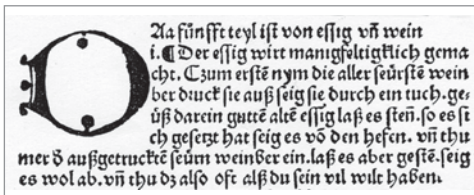 DAa fünfft teyl ist von essig vn̄ wein
i. ¶ Der essig wirt manigfeltigklich gema
cht. Czum erstē nym die aller seürste wein
ber druck sie auß seig sie durch ein tuch. ge⸗
üß darein guttē altē essig laß es stēn. so es si
ch gesetzt hat seig es vō den hefen. vn̄ thu
mer d̄ außgetrucktē seürn weinber ein. laß es aber gestē. seig
es wol ab. vn̄ thu dz also oft alß du sein vil wilt haben.